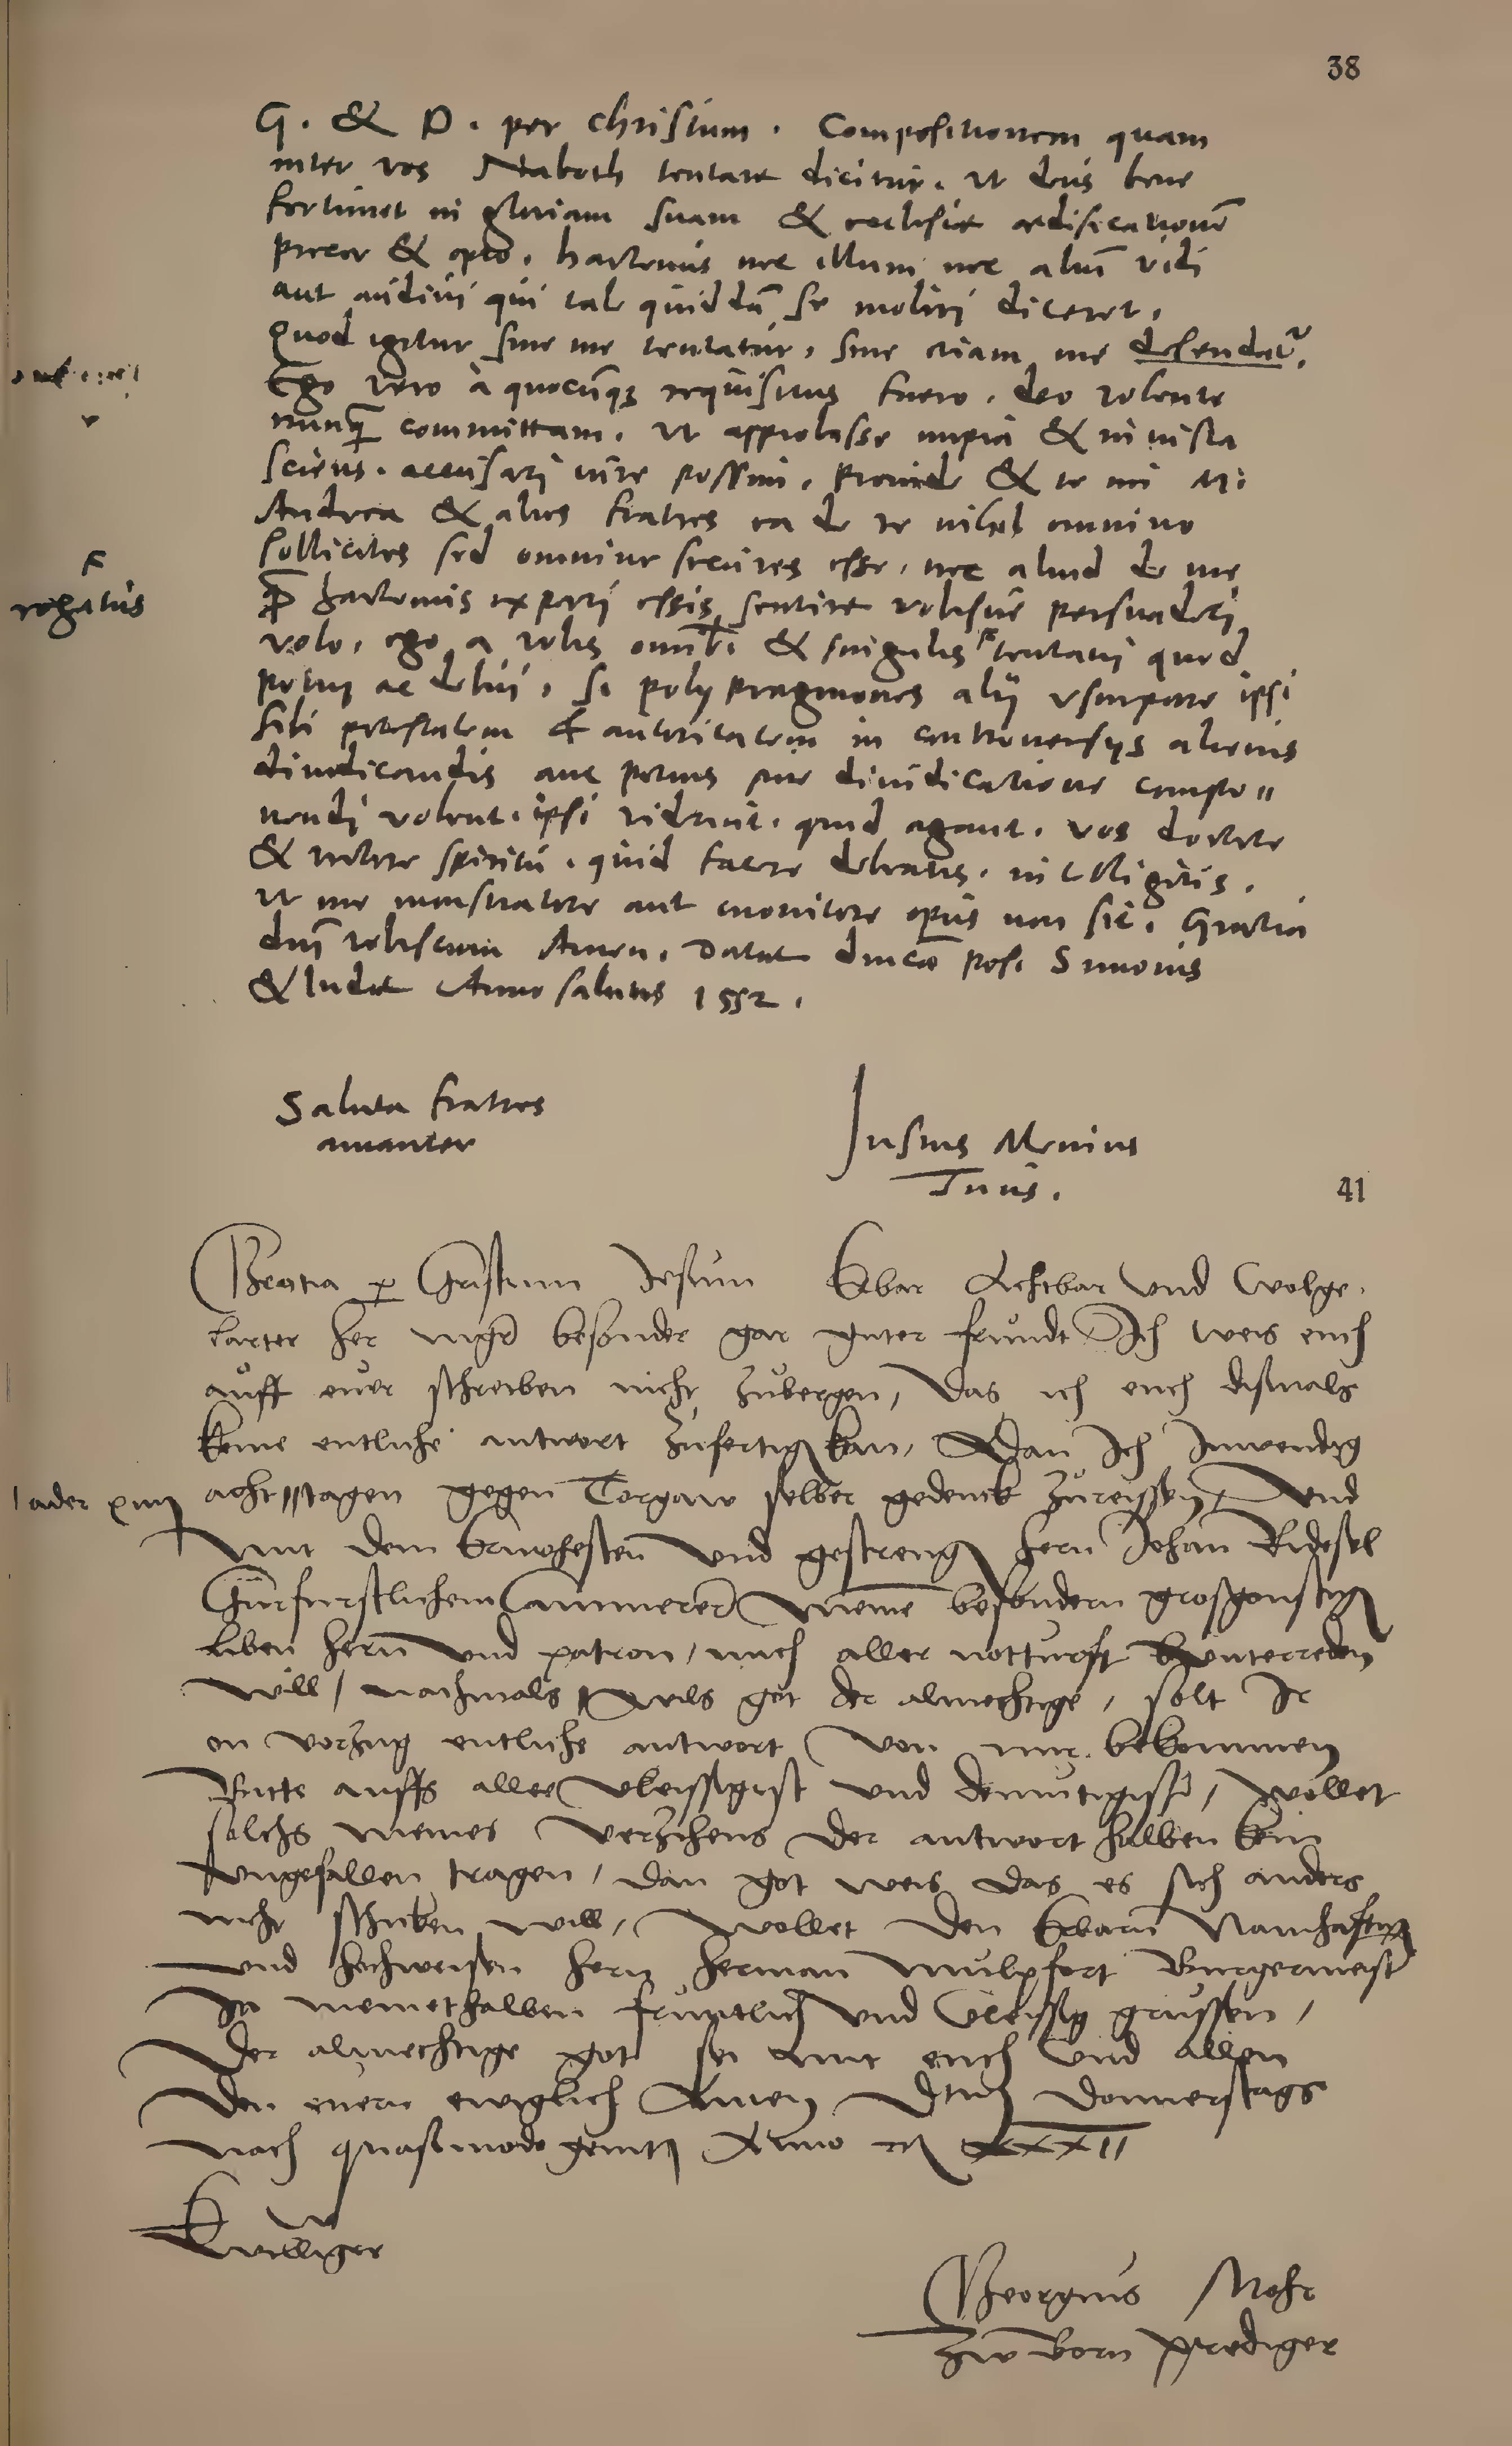 38
G. & P. per Christum. Compositionem quam
inter vos Naboth tentare dicitur. Ut deus bene
fortunet in gloriam suam & ecclesiae aedificationē
precor & opto. hactenus nec illum nec aliū vidi
aut audivi qui tale quiddā se moliri diceret.
Quod igitur sine me tentatur, sine etiam me defendat᷑.
Ego vero à quocūqꝫ requisitus fuero, deo volente
nunq̄ committam, ut approbasse impia & iniusta
sciens, accusari iure possim. Proinde & te mi M:
Andrea & alios fratres ea de re nihil omnino
sollicitos sed omnino securos esse, nec aliud de me
ꝙ hactenus experti estis sentire vobisque persuaderi
volo, ego a vobis omnib. & singulis F tentavi quod
potui ac debui, si polypragmones alij usurpare ipsi
sibi potestatem & autoritatem in controversijs alienis
diiudicandis aut potius sine diiudicatione compo =
nendi volent, ipsi viderint, quid agant. Vos doctore
& rectore spiritu, quid facere debeatis, intelligitis,
ut me monstratore aut monitore opus non sit. Gratia
dn̄i vobiscum Amen. Datae dn̄ica post Simonis
& Iudae Anno salutis 1552.
F
rogatus
Saluta fratres
amanter
Iustus Menius
Tuus.
41
Gratia p Cristum Jesum Erbar Achtbar und Wolge.
larter her mgr̄ besonder gar guter frundt Ich weis euch
auff euer schreiben nicht zubergen, das ich euch dismals
keine entliche antwort zufertig kan, Dan Ich Inwendig
acht tagen gegen Torgaw selber gedenck zureissen, Und
ader xiiij
mit dem Ernvhesten und gestreng hern Johan Ridesel
Churfurstlichem Cammerer meine besondern grosgonstig
liben hern und patron, mich aller notturft bunterreden
will, nachmals wils got der almechtige, solt Ir
on vorzug entliche antwort von mir bekommen
Bitte auffs aller vleissigist und demutigist, wollet
solchs meines verzihens der antwort halben kein
ungefallen tragen, dan got weis das es sich anders
nicht schicken will, Wollet den Erbarn Namhaftig
und hochweisen hern herman mulpfort Burgermeist
In meinethalben fruntlich und vleissig grussen,
Der almechtige got sei mit euch und allen
den euern ewiglich Amen Dtm̄ Donnerstags
nach quasimodo genitj Anno rc XXXII
E
williger
Georgius Mohr
zw Born prediger